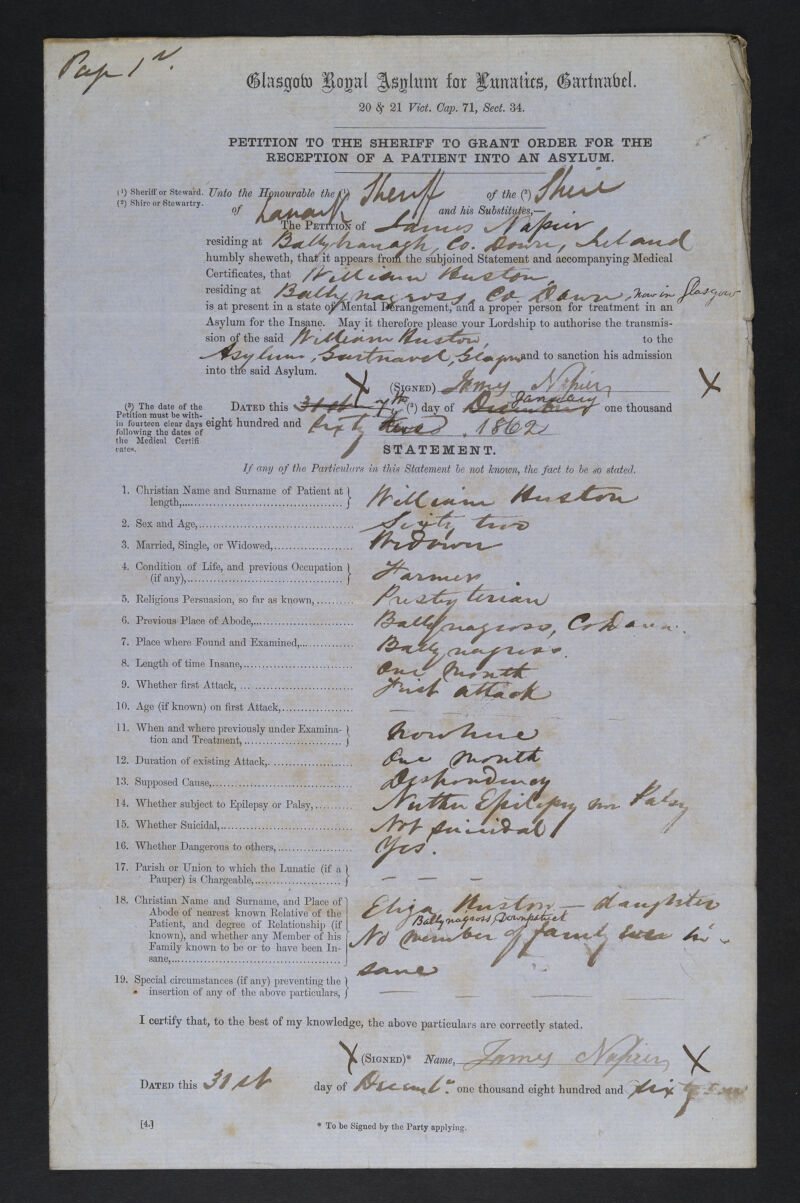 Pap 1
Glasgow Royal Asylum for Lunatics, Gartnavel.
20 & 21 Vict. Cap. 71, Sect. 34.
PETITION TO THE SHERIFF TO GRANT ORDER FOR THE
RECEPTION OF A PATIENT INTO AN ASYLUM.
(1) Sheriff or Steward.
(2) Shire or Stewartry.
Unto the Honourable the (1) Sheriff of the (2) Shire
of Lanark and his Substitutes,—
The PETITION of James Napier
residing at Ballybranagh, Co. Down, Ireland
humbly sheweth, that it appears from the subjoined Statement and accompanying Medical
Certificates, that William Huston,
residing at Ballynagross, Co. Down, now in Glasgow
is at present in a state of Mental Derangement, and a proper person for treatment in an
Asylum for the Insane. May it therefore please your Lordship to authorise the transmis-
sion of the said William Huston, to the
Asylum, Gartnavel, Glagow and to sanction his admission
into the said Asylum.
(SIGNED) James Napier
(3) The date of the
Petition must be with-
in fourteen clear days
following the dates of
the Medical Certifi
cates.
DATED this 31st 7th (3) day of December January one thousand
eight hundred and sixty 1862
STATEMENT.
If any of the Particulars in this Statement be not known, the fact to be so stated.
1. Christian Name and Surname of Patient at
length, William Huston
2. Sex and Age, Sixty two
3. Married, Single, or Widowed, Widower
4. Condition of Life, and previous Occupation
(if any), Farmer
5. Religious Persuasion, so far as known, Presbyterian
6. Previous Place of Abode, Ballynagross, Co Down.
7. Place where Found and Examined, Ballynagross.
8. Length of time Insane, One Month
9. Whether first Attack, First attack
10. Age (if known) on first Attack,
11. When and where previously under Examina-
tion and Treatment, Nowhere
12. Duration of existing Attack, One Month
13. Supposed Cause, Despondency
14. Whether subject to Epilepsy or Palsy, Neither Epilepsy nor Palsy
15. Whether Suicidal, Not suicidal
16. Whether Dangerous to others, Yes.
17. Parish or Union to which the Lunatic (if a
Pauper) is Chargeable, — — —
18. Christian Name and Surname, and Place of
Abode of nearest known Relative of the
Patient, and degree of Relationship (if
known), and whether any Member of his
Family known to be or to have been In-
sane,
Eliza Huston — daughter
Ballynagross, Downpatrick
No member of family ever in-
sane
19. Special circumstances (if any) preventing the
insertion of any of the above particulars,
I certify that, to the best of my knowledge, the above particulars are correctly stated.
(SIGNED)* Name, James Napier
DATED this 31st day of Decembr. one thousand eight hundred and sixty
[4.]
* To be Signed by the Party applying.